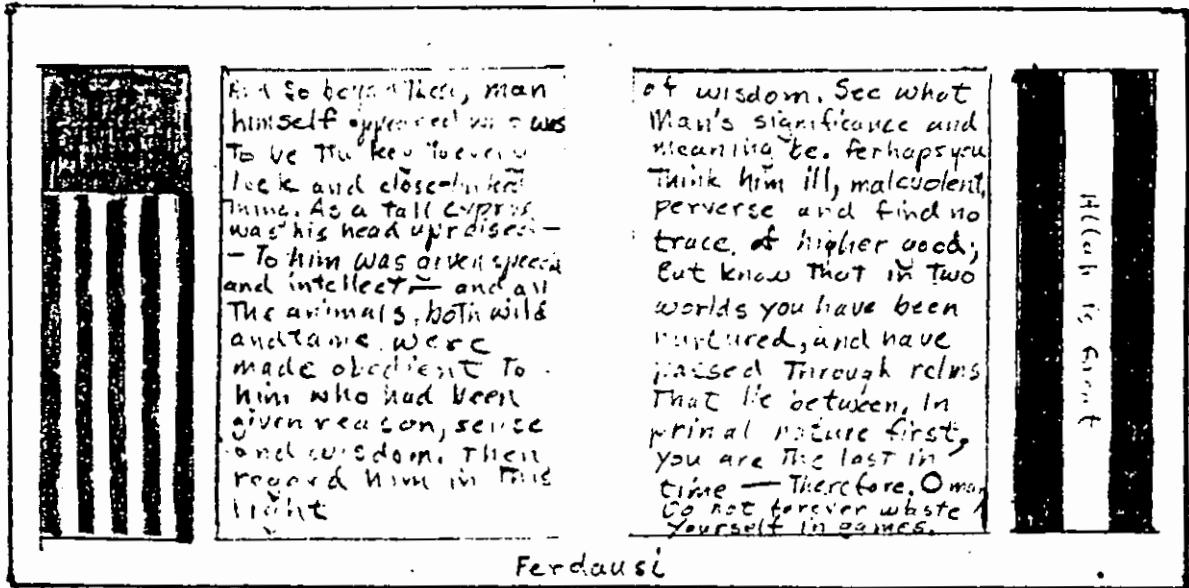 And so beyond these, man
himself appeared who was
To be The key To every
lock and close-linked
Thing. As a Tall cypress
was his head upraised —
— To him was given speech
and intellect — and all
The animals, both wild
and tame, were
made obedient To
him who had been
given reason, sense
and wisdom. Then
regard him in This
light
of wisdom. See what
Man's significance and
meaning be. Perhaps you
Think him ill, malevolent,
perverse and find no
trace of higher good;
But know That in Two
worlds you have been
nurtured, and have
passed Through relms
That lie between. In
primal nature first,
you are The last in
time — Therefore, O man
Do not forever waste
yourself in games.
Allah is Great
Ferdausi